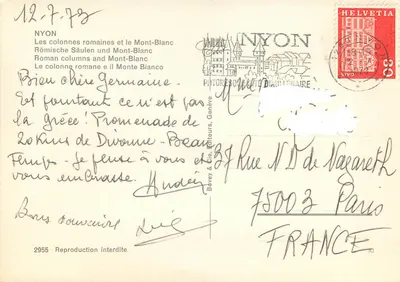 12.7.73
NYON
Les colonnes romaines et le Mont-Blanc
Römische Säulen und Mont-Blanc
Roman columns and Mont-Blanc
Le colonne romane e il Monte Bianco
Bien chère Germaine.
Et pourtant ce n'est pas
la grèce! Promenade de
20 kms de Divonne - Beau
Temps - Je pense à vous et
vous embrasse.
Andrée
Bons souvenirs
2955 - Reproduction interdite
Genève
NYON
HELVETIA
30
Mme
37 Rue N D de Nazareth
75003 Paris
FRANCE